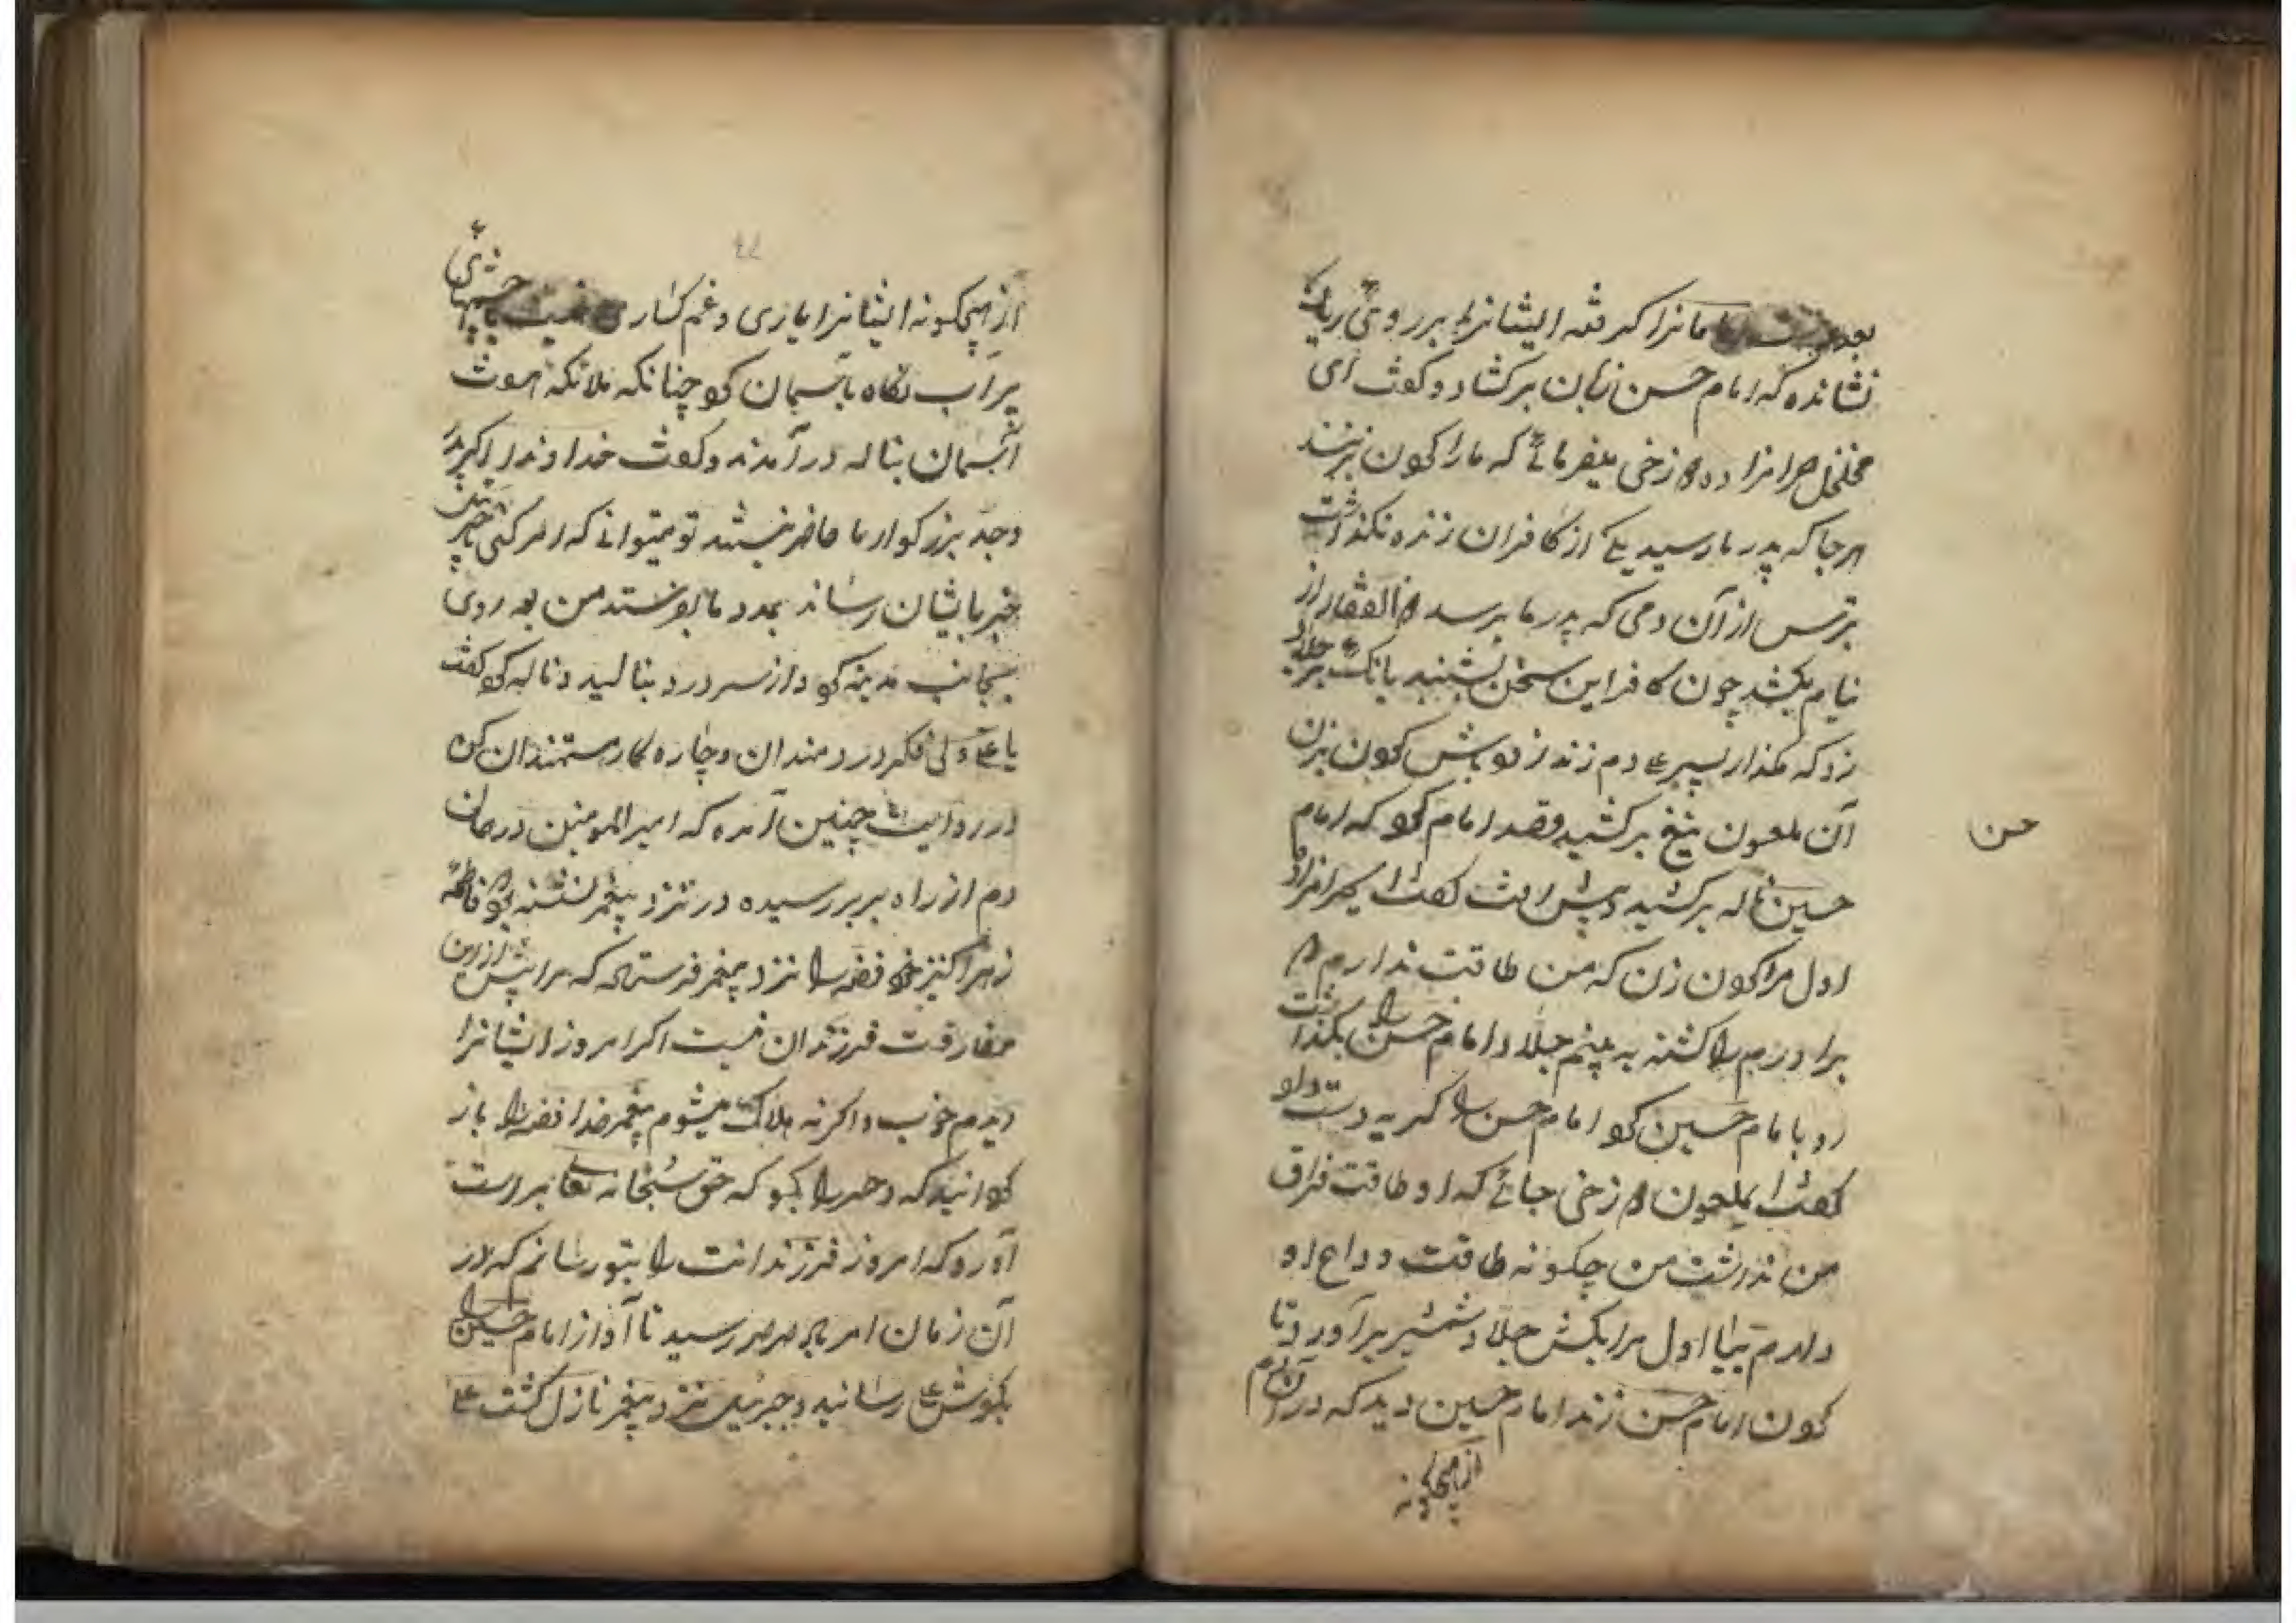 امامانرا گرفته ایشانرا بر روی ریک
نشانده که امام حسن زبان برکشاد و کفت ای
حرامزاده زخی میفرمائے که مارا کردن بزنند
هرجا که پدر ما رسید یکے از کافران زنده نکذاشت
بترس از آن دمی که پدر ما برسد ذالفقار از
نیام بکشد چون کافر این سخن بشنید بانک بر جلاد
زد که مکذار پسر علے دم زند زو باش کردن بزن
آن ملعون تیغ برکشید و قصد امام کرد که امام
حسن
حسین ناله برکشید و پیش رفت کفت ای حرامزاده
اول مرا کردن زن که من طاقت ندارم که
برادرم را کشته به بینم جلاد امام حسن را بکذاشت
رو بامام حسین کرد امام حسن را کریه دست داد
کفت ای ملعون زخی جائے که او طاقت فراق
من نداشت من چکونه طاقت وداع او
دارم بیا اول مرا بکش جلاد شمشیر برآورد تا
کردن امام حسن زند امام حسین دید که در آن دم
از هیچکونه
از هیچکونه ایشانرا یاری و غم کسار نیست با چشمهای
پر آب نکاه باسمان کرد چنانکه ملائکه هموت
آسمان بناله در آمدند و کفت خداوندا اکر پدر
و جد بزرکوار ما حاضر نیستند تو میتوانے که امر کنی
خبر بایشان رساند بمدد ما بفرستد من بعد روی
بجانب مدینه کرد و از سر درد بنالید و ناله کرد کفت
یا علے ولی فکر دردمندان و چاره کار مستمندان کن
در روایت چنین آمده که امیرالمومنین در همان
دم از راه بربر رسیده در نزد پیغمبر نشسته بود فاطمه
زهرا کنیز خود فضه را نزد پیغمبر فرستاد که مرا پیش ازین
مفارقت فرزندان نیست اکر امروز ایشانرا
دیدم خوب و اکرنه هلاک میشوم پیغمبر خدا فضه را باز
کردانید که دختر را بکو که حق سبحانه تعالے بر راست
آورد که امروز فرزندانت را بتو رسانم که در
آن زمان امر بباد صرصر رسید تا آواز امام حسین را
بکوش علے رسانید و جبرئیل نزد پیغمبر نازل کشت علے